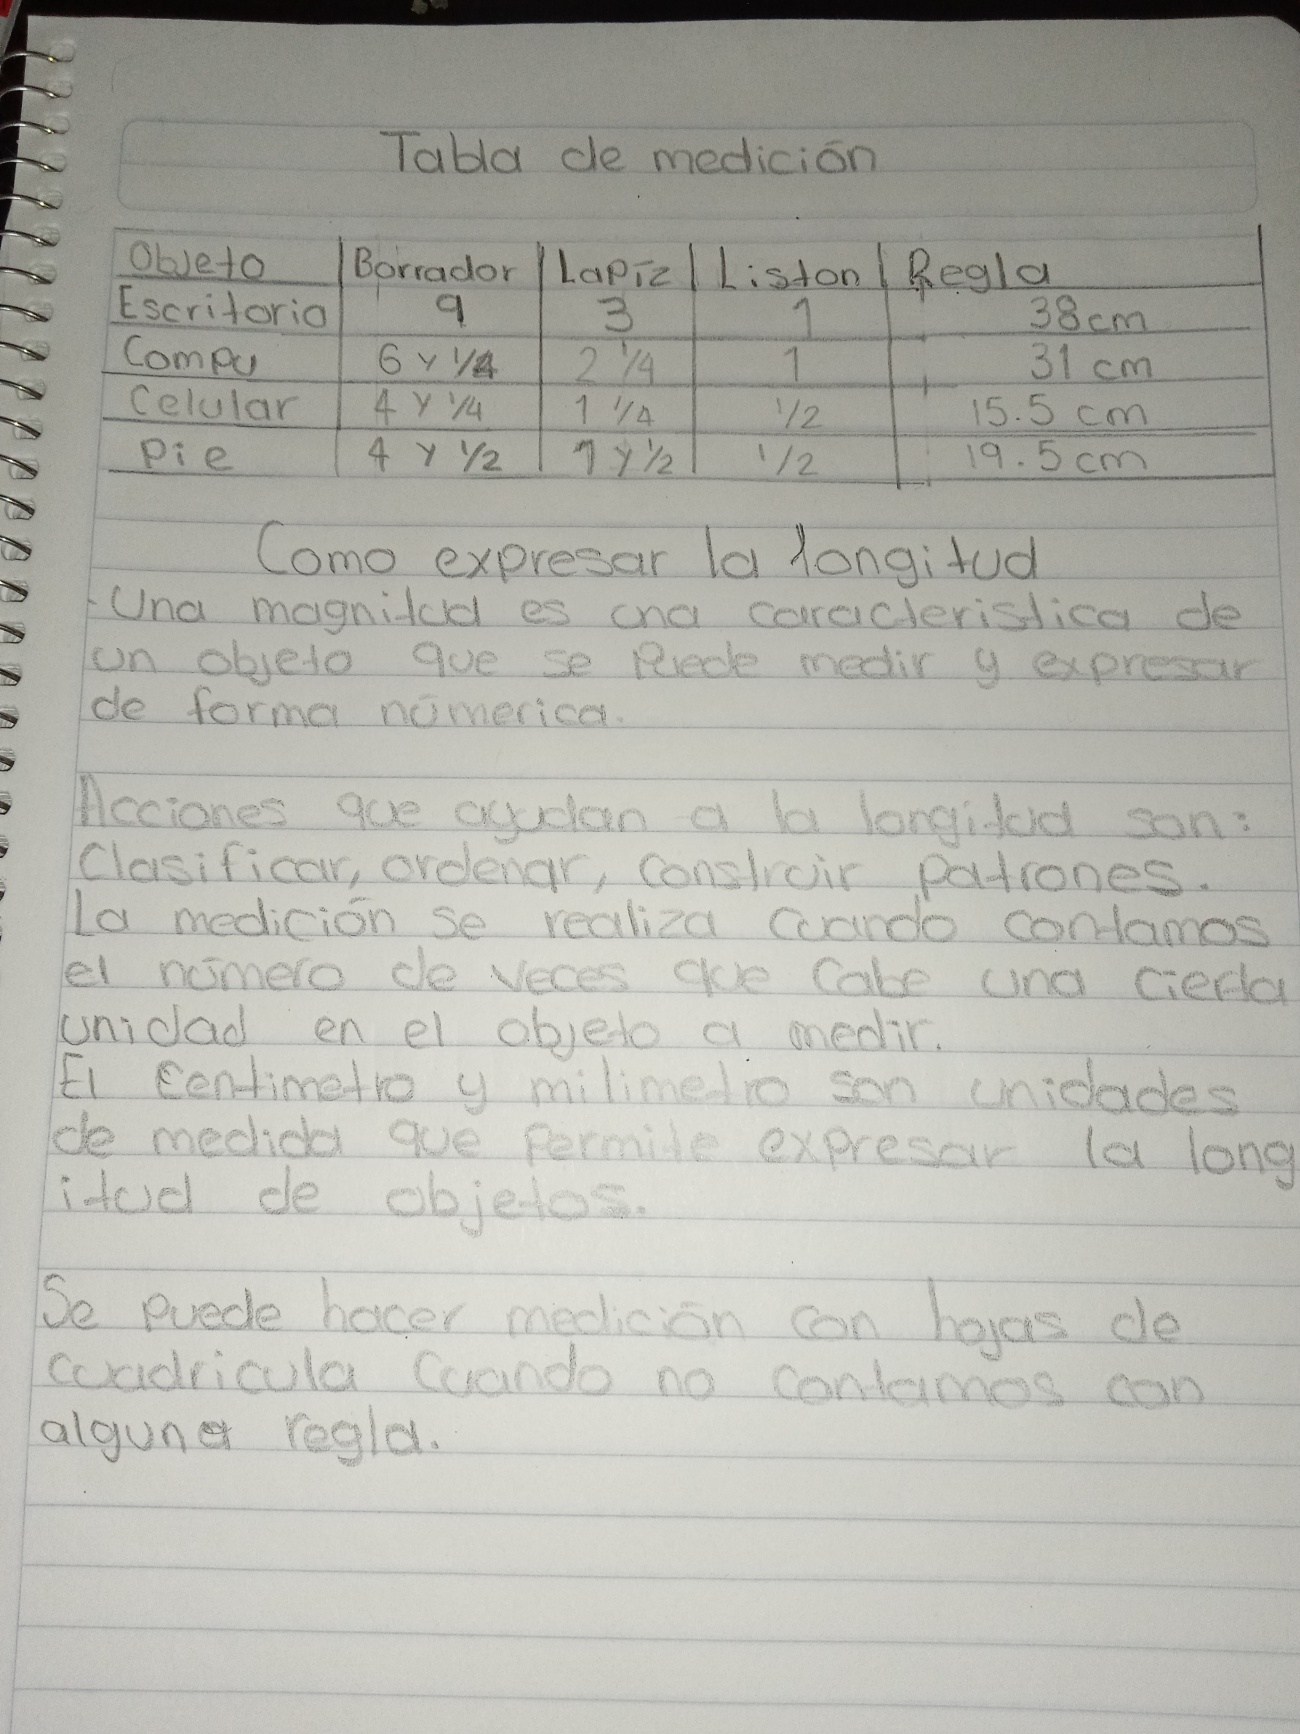 Tabla de medición
Objeto Borrador Lapíz Liston Regla
Escritorio 9 3 1 38cm
Compu 6 y 1/4 2 1/4 1 31 cm
Celular 4 y 1/4 1 1/4 1/2 15.5 cm
Pie 4 y 1/2 1 y 1/2 1/2 19.5 cm
Como expresar la longitud
-Una magnitud es una caracteristica de
un objeto que se puede medir y expresar
de forma númerica.
Acciones que ayudan a la longitud son:
Clasificar, ordenar, construir patrones.
La medición se realiza cuando contamos
el número de veces que cabe una cierta
unidad en el objeto a medir.
El centimetro y milimetro son unidades
de medida que permite expresar la long
itud de objetos.
Se puede hacer medición con hojas de
cuadricula cuando no contamos con
alguna regla.